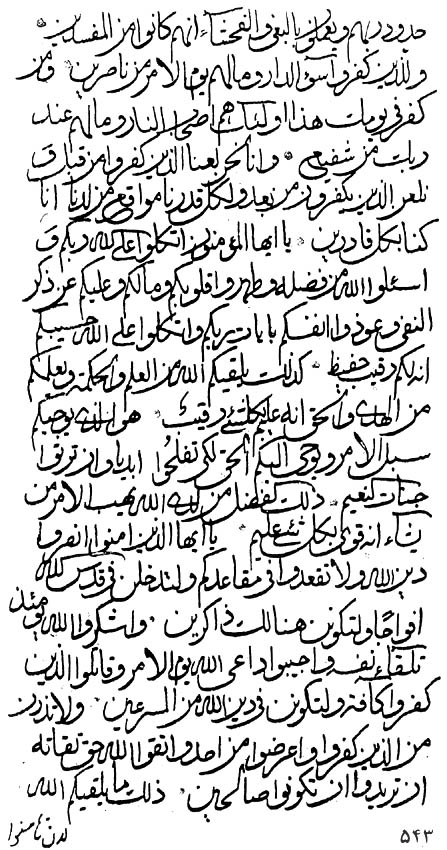 حدود ربهم ويعملون بالبغي والفحشاء انهم كانوا من المفسدين
والذين كفروا اسوء الدار ومالهم يوم الامر من ناصرين ومن
كفر في يومك هذا اولئك هم اصحاب النار ومالهم عند
ربك من شفيع وانا نحن لعنا الذين كفروا من قبلك و
نلعن الذين يكفرون من بعد ولكل قدرنا مواقع من لدنا انا
كنا بكل قادرين يا ايها المؤمنون اتكلوا على الله ربكم و
اسئلوا الله من فضله وطهروا قلوبكم ومالكم وعليكم عن ذكر
النفي وعوذوا انفسكم بايات ربكم واتكلوا على الله حسيبكم
انه لكم رقيب حفيظ كذلك يلقيكم الله من العلم والحكمة ويعلمكم
من الهدى والحق انه على كل شئ رقيب هو الذي يوحيكم
سبل الامر ويوحى اليكم الحق لكي تفلحوا ابديا وان ترثوا
جنات النعيم ذلك لفضل من لدى الله يهب الامر من
يشاء انه قوي بكل شئ عليم يا ايها الذين امنوا انصروا
دين الله ولا تقعدوا في مقاعدكم ولتدخلن في قدس الله
افواجا ولتكونن هنالك ذاكرين واشكروا الله في
تلقاء نفسه واجيبوا داعي الله يوم الامر وقاتلوا الذين
كفروا كافة ولتكونن في دين الله من المسرعين ولا تذرن
من الذين كفروا واعرضوا من احد واتقوا الله حق تقاته
ان تريدوا ان تكونوا صالحين ذلك ما يلقيكم الله
۵۴۳